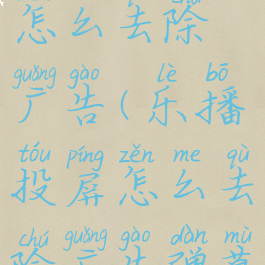 怎么去除
guǎng gào lè bō
广告(乐播
tóu píng zěn me qù
投屏怎么去
chú guǎng gào dàn mù
除广告弹幕